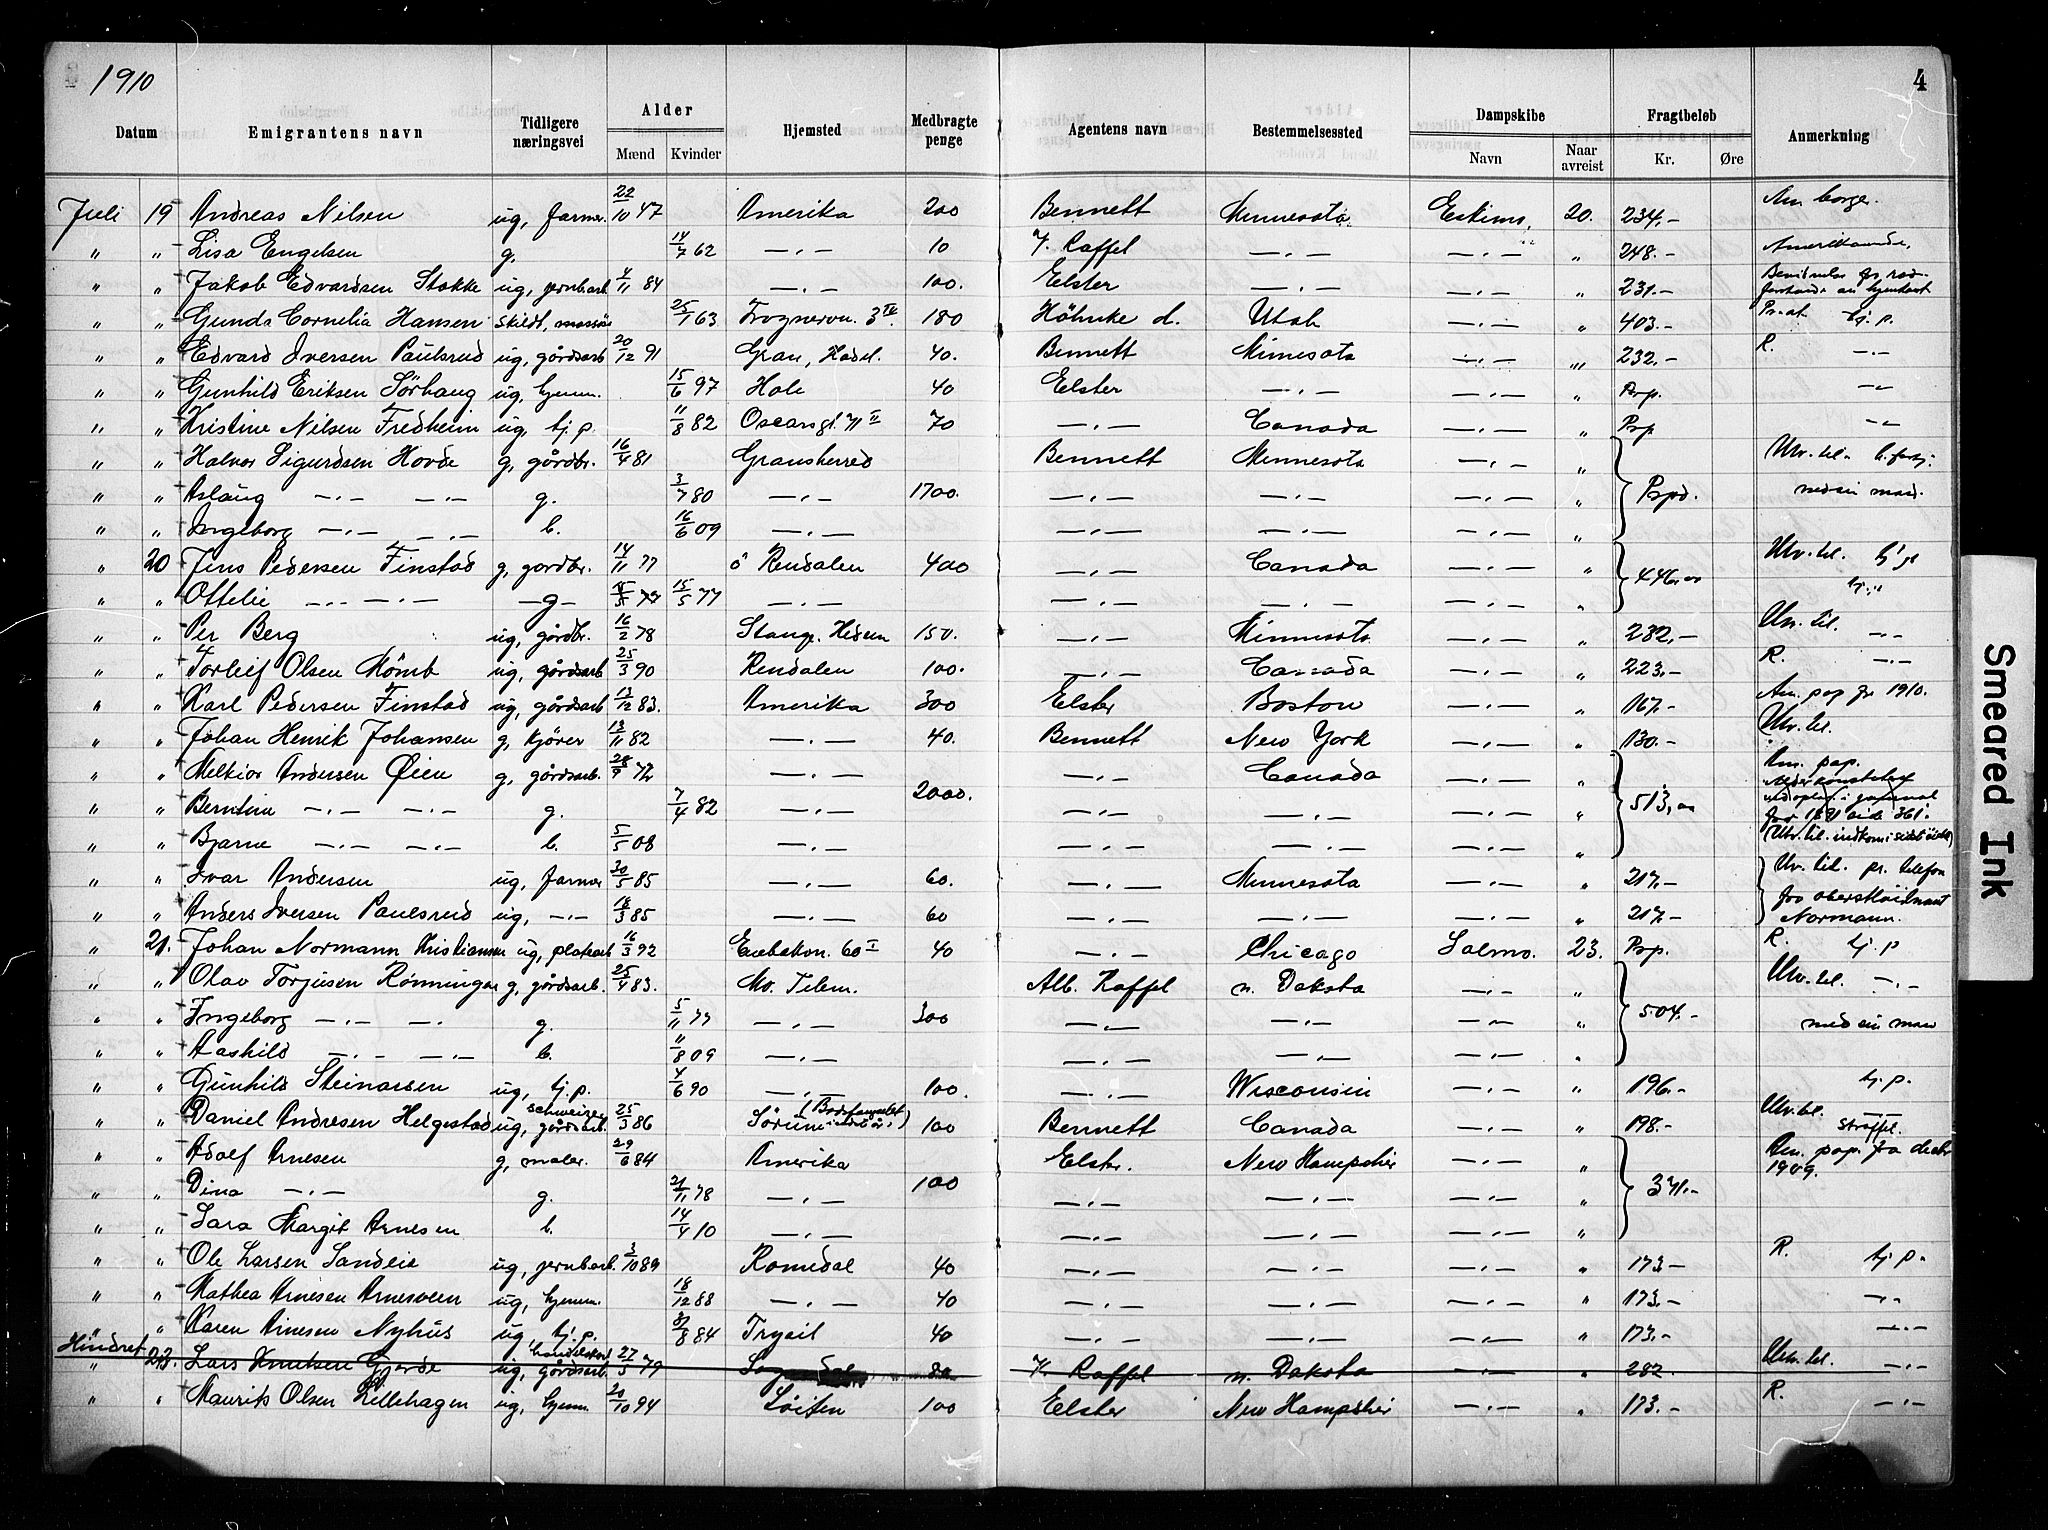 1910
4
Datum | Emigrantens navn | Tidligere næringsvei | Alder Mænd Kvinder | Hjemsted | Medbragte penge | Agentens navn | Bestemmelsessted | Dampskibe Navn Naar avreist | Fragtbeløb Kr. Øre | Anmerkning
Juli 19 Andreas Nilsen ug, farmer. 22/10 47 Amerika 200 Bennett Minnesota Eskimo. 20. 234.- Am. borger.
" " Lisa Engelsen g. 14/7 62 —.— 10 Raffel —.— " 248.-
" " Jakob Edvardsen Stokke ug, jernbarb. 4/11 84 —.— 100. Elster —.— —.— " 231.-
" " Gunda Cornelia Hansen skildt, massøse 25/1 63 Trognervn. 3 IV 180 Höhnke d. Utah —.— " 403.- tj. p.
" " Edvard Iversen Paulsrud ug, gårdsarb 20/12 91 Gran, Hadel. 40. Bennett Minnesota —.— " 232.- R. —.—
" " Gunhild Eriksen Sörhaug ug, hjemm. 15/6 97 Hole 40 Elster —.— —.— " Prp. —.—
" " Kristine Nilsen Fredheim ug, tj. p. 11/8 82 Oscarsgt. 71 II 70 —.— Canada —.— " Prp —.—
" " Halvor Sigurdsen Hovde g, gårdbr. 16/4 81 Gransherred Bennett Minnesota —.— " Utv. til.
" " Aslaug —.— —.— g. 3/7 80 —.— 1700. —.— —.— —.— " Prpd. med sin mand.
" " Ingeborg —.— —.— b. 16/6 09 —.— —.— —.— —.— "
" 20 Jens Pedersen Finstad g, gordbr. 14/11 77 ö Rendalen 400 —.— Canada —.— " 446,00 Utv. til.
" " Ottelie —.— —.— —g— 15/5 77 —.— —.— —.— —.— "
" " Per Berg ug, gårdbr. 16/2 78 Stange. Hedem 150. —.— Minnesota —.— " 232,- Utv. til. —.—
" " Torleif Olsen Mömb ug, gårdsarb 25/3 90 Rendalen 100. —.— Canada —.— " 223.- R. —.—
" " Karl Pedersen Finstad ug, gårdsarb 13/12 83. Amerika 300 Elster Boston —.— " 167.- Am. pap. fr 1910.
" " Johan Henrik Johansen g, kjörer 13/11 82 —.— 40. Bennett New York —.— " 130.- Utv. til.
" " Melkior Andersen Øien g, gårdsarb. 28/9 72 —.— —.— Canada —.— " Am. pap.
" " Berntine —.— —.— g. 7/4 82 —.— 2000. —.— —.— —.— " 513,00
" " Bjarne —.— —.— b. 5/5 08 —.— —.— —.— —.— "
" " Ivar Andersen ug, farmer 30/5 85 —.— 60. —.— Minnesota —.— " 217.- Utv. til. pr. telefon
" " Anders Iversen Paulsrud ug, —.— 18/3 85 —.— 60 —.— —.— —.— " 217.- fra Normann.
" 21. Johan Normann Kristiansen ug, platearb 16/3 92 Enebakvn. 60 I 40 —.— Chicago Salmo. 23. Prp. R. tj. p
" " Olav Torjusen Rönningar g, gårdsarb. 25/4 83. Mo. Telem. Alb. Raffel n. Dakota —.— " Utv. til. —.—
" " Ingeborg —.— —.— g. 5/11 77 —.— 300 —.— —.— —.— " 504.- med sin man
" " Aashild —.— —.— b. 11/8 09 —.— —.— —.— —.— "
" " Gunhild Steinarsen ug, tj. p. 4/6 90 —.— 100. —.— Wisconsin —.— " 196.- tj. p.
" " Daniel Andresen Helgestad ug, schweizer gårdsarb. 25/3 86 Sörum (Bodsfængslet) 100 Bennett Canada —.— " 198.- Utv. til. straffel.
" " Adolf Arnesen g, maler. 29/6 84 Amerika Elster. New Hampshier —.— " Am. pap. fra 1909.
" " Dina —.— g. 21/11 78 —.— 100 —.— —.— —.— " 371.-
" " Sara Margit Arnesen b. 14/4 10 —.— —.— —.— —.— "
" " Ole Larsen Sandlie ug, jernbarb. 3/10 89 Romedal 40 —.— —.— —.— " 173.- R. tj. p.
" " Mathea Arnesen Arnesveen ug, hjemm. 18/12 88 —.— 40 —.— —.— —.— " 173.- —.—
" " Karen Arnesen Nyhus ug, tj. p. 31/8 84 Trysil 40 —.— —.— —.— " 173.- —.—
Hindret
" 23. Lars Knutsen Gjerde ug, gårdsarb 27/5 79 Raffel n. Dakota —.— " 282 Utv. til. —.—
" " Maurits Olsen Lillehagen ug, hjemm. 20/10 94 Löiten 100 Elster New Hampshier —.— " 173.- R. —.—
Smeared Ink